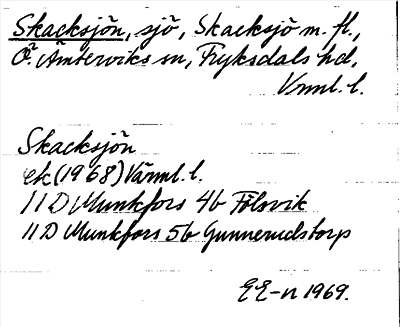 Skacksjön, sjö, Skacksjö m. fl.,
Ö. Ämterviks sn, Fryksdals hd,
Vrml. l.
Skacksjön
ek (1968) Värml. l.
11 D Munkfors 4b Fölsvik
11 D Munkfors 5b Gunnerudstorp
EE-n 1969.